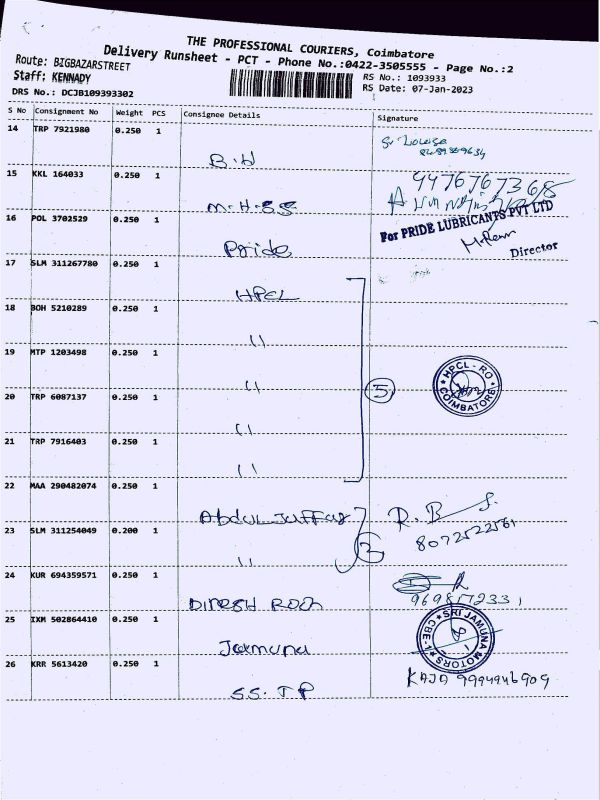 THE PROFESSIONAL COURIERS, Coimbatore
Delivery Runsheet - PCT - Phone No.:0422-3505555 - Page No.:2
Route: BIGBAZARSTREET
Staff: KENNADY
RS No.: 1093933
DRS No.: DCJB109393302
RS Date: 07-Jan-2023
S No Consignment No Weight PCS Consignee Details Signature
14 TRP 7921980 0.250 1
B.W
15 KKL 164033 0.250 1
9476767368
M.H.SS
16 POL 3702529 0.250 1
For PRIDE LUBRICANTS PVT LTD
Pride
Director
17 SLM 311267780 0.250 1
HPCL
18 BOH 5210289 0.250 1
11
19 MTP 1203498 0.250 1
HPCL - RO
COIMBATORE
11
5
20 TRP 6087137 0.250 1
11
21 TRP 7916403 0.250 1
11
22 MAA 290482074 0.250 1
Abdul Jaffar R. B
8072522561
23 SLM 311254049 0.200 1
2
11
24 KUR 694359571 0.250 1
9698572331
DINESH
25 IXM 502864410 0.250 1
SRI JAMUNA MOTORS
CBE-1
Jamuna
26 KRR 5613420 0.250 1
KAJA 9994946909
SS. TP